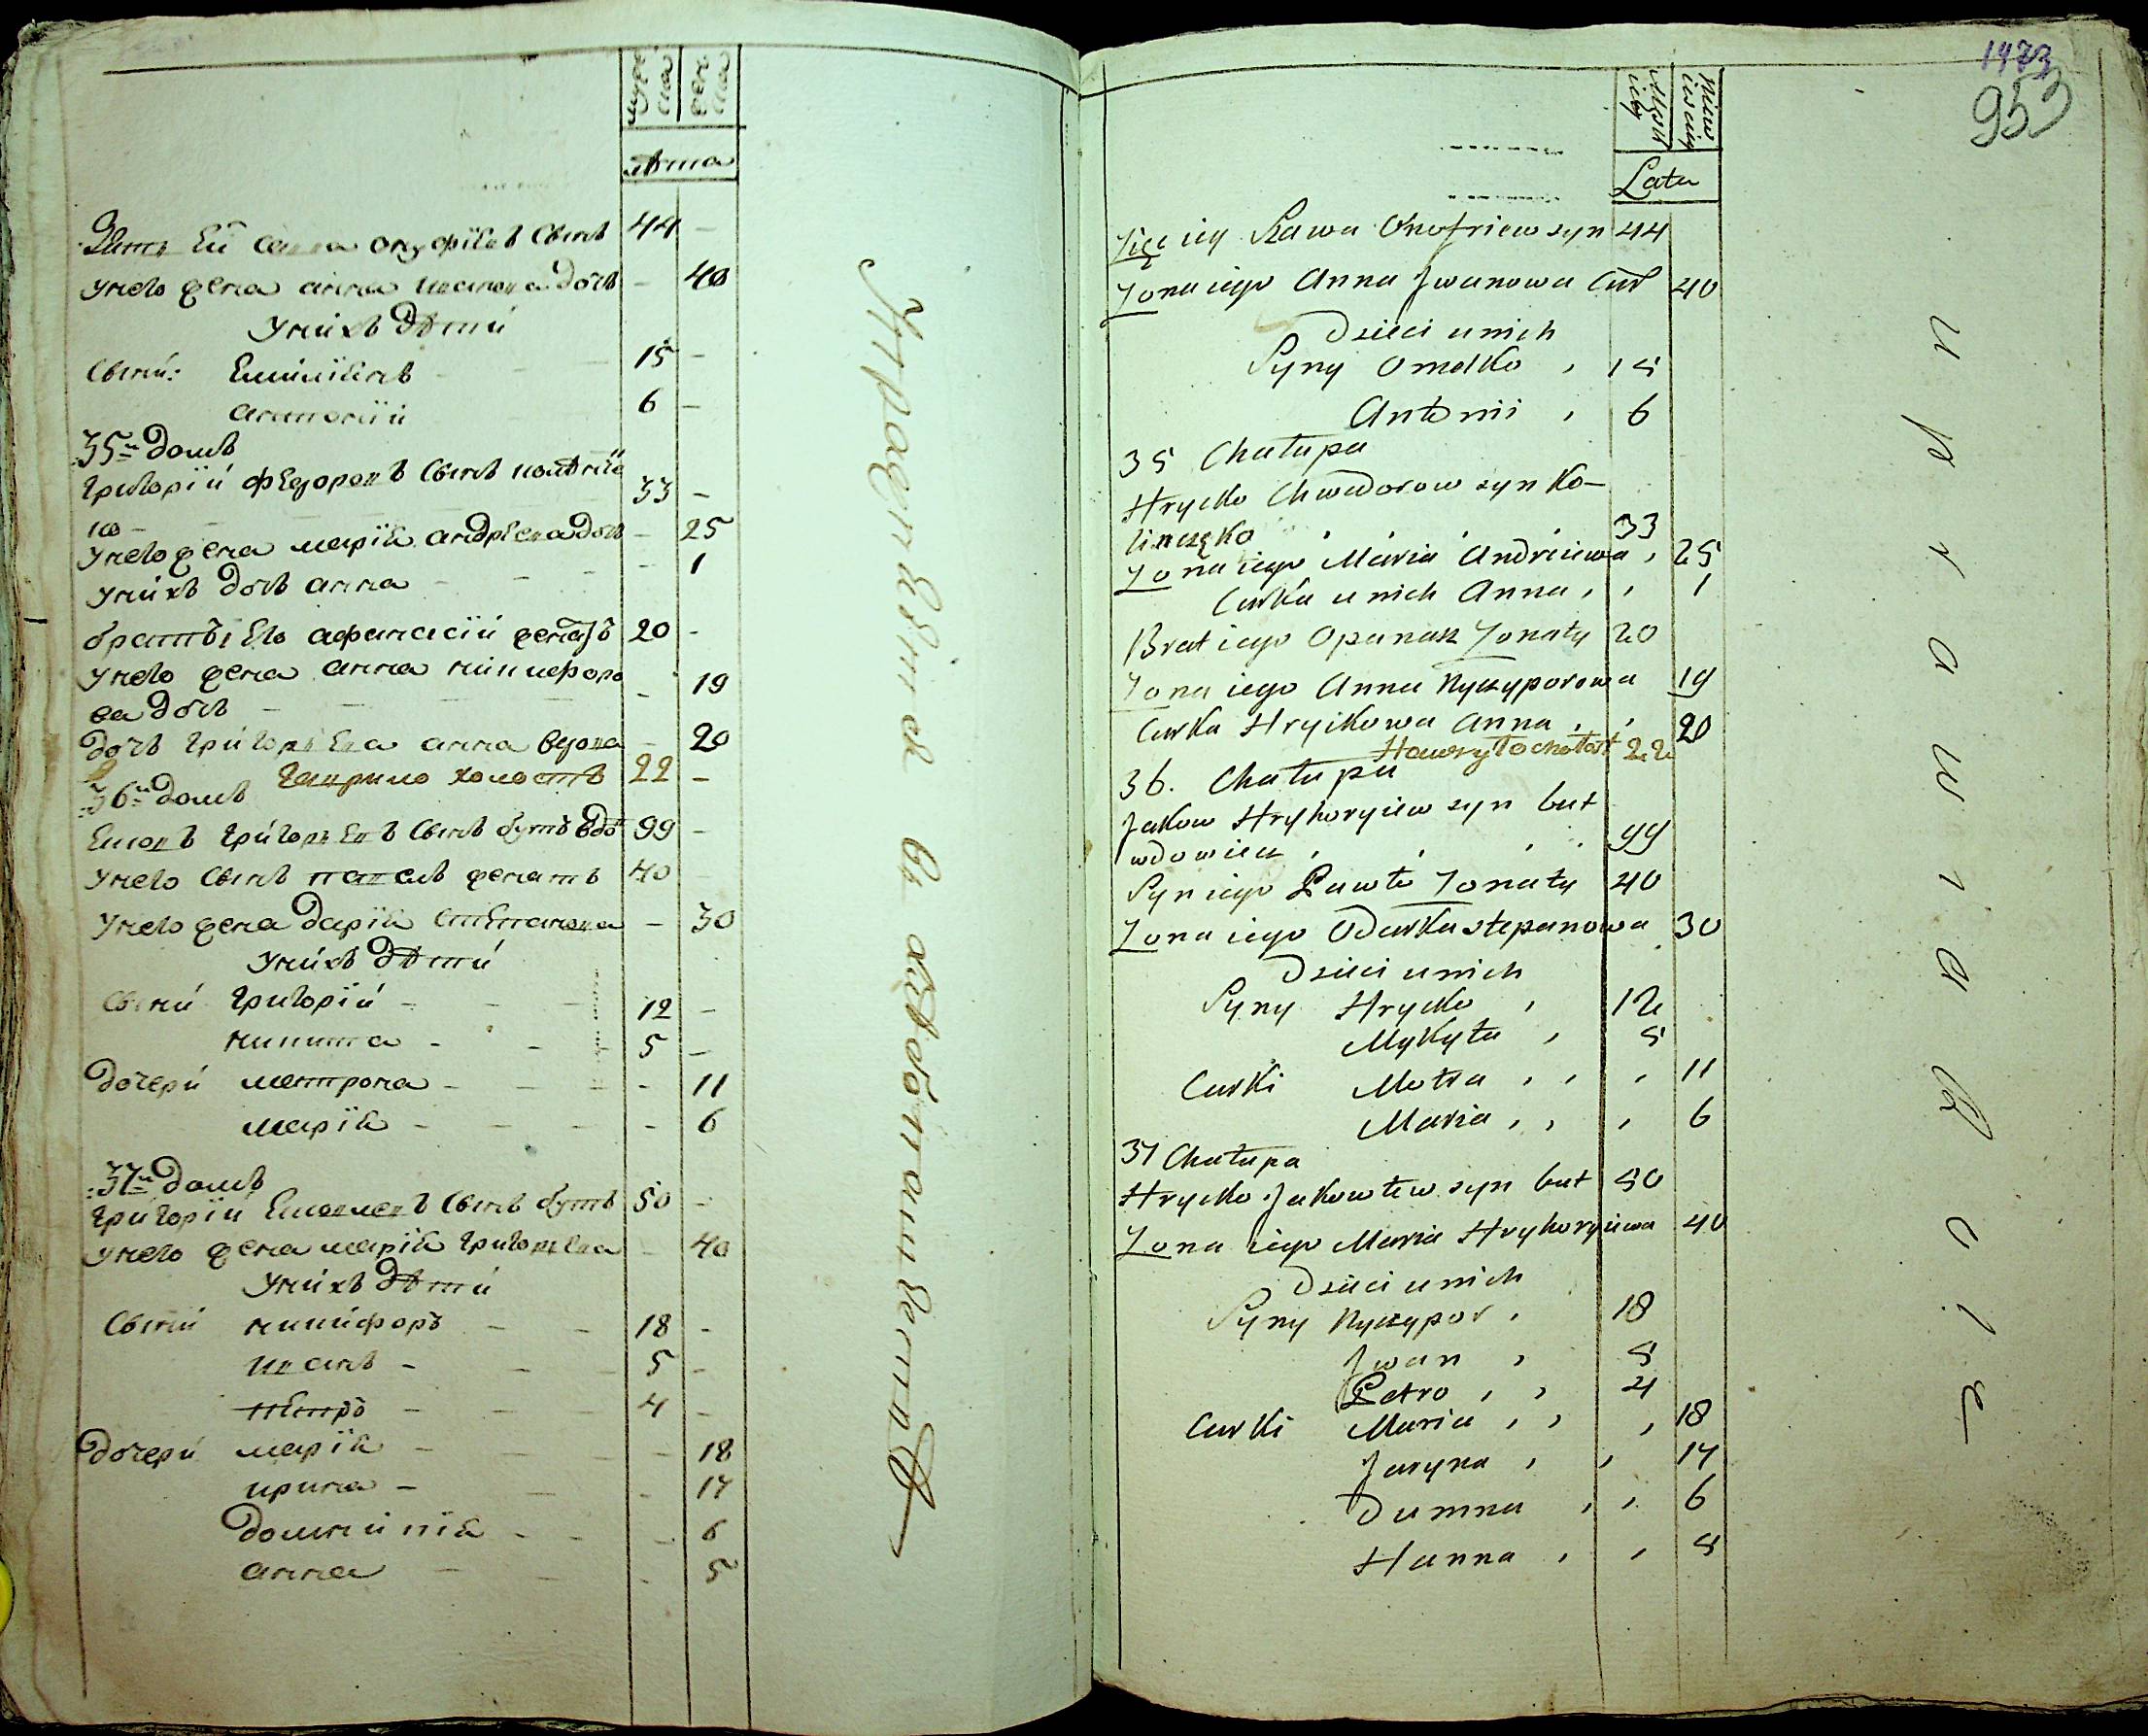 мужеска
женска
лѣта
Зять Ей Савва онуфріевъ Сынъ 44 -
унего жена анна иванова дочь - 40
унихъ Дѣти
Сыни: Емиліянъ - 15 -
антоній 6 -
35й домъ
григорій Феѡдоровъ Сынъ
33 -
унего жена марія андрѣева дочь - 25
унихъ дочь анна - - - 1
братъ Его афанасій женатъ 20 -
унего жена анна никифоро
ва дочь - - 19
дочь григорьева анна вдова - 20
гаврило холостъ 22 -
36й домъ
Яковъ григорьевъ Сынъ бутъ вдо 99 -
унего Сынъ павелъ женатъ 40
унего жена дарія степанова - 30
унихъ Дѣти
Сыни григорій - 12 -
никита - 5 -
дочери матрона - - 11
марія - - 6
37й домъ
григорій Яковлевъ Сынъ бутъ 50 -
унего жена марія григорьева - 40
унихъ дѣти
Сыни никифоръ - 18 -
иванъ - 5 -
петръ - 4 -
дочери марія - - 18
ирина - - 17
домникія - - 6
анна - - 5
Управленія въ
1473
953
Męsk
iey
Niew
iesciey
Lata
Zięć iey Sawa Onofriew syn 44
Zona iego Anna Jwanowa Cur 40
Dzieci u nich
Syny Omelko , 15
Antonii , 6
35 Chałupa
Hrycko Chwedorow syn Ko-
33
Zona iego Maria Andreiewa , 25
Curka u nich Anna , , 1
Brat iego Opanas Zonaty 20
Zona iego Anna Nyczyporowa 19
Curka Hryckowa Anna , , 20
Hawryło chołost 22
36. Chałupa
Jakow Hryhoryiew syn but
wdowiec , , , 99
Syn iego Pawło Zonaty 40
Zona iego Odarka stepanowa 30
Dzieci u nich
Syny Hrycko , 12
Mykyta , 5
Curki Motra , , , 11
Maria , , , 6
37 Chałupa
Hrycko Jakowlew syn but 50
Zona iego Maria Hryhoryiewa 40
Dzieci u nich
Syny Nyczypor , 18
Jwan , 5
Petro , , 4
Curki Maria , , , 18
Jaryna , , 17
Dumna , , 6
Hanna , , 5
uprawiaiące